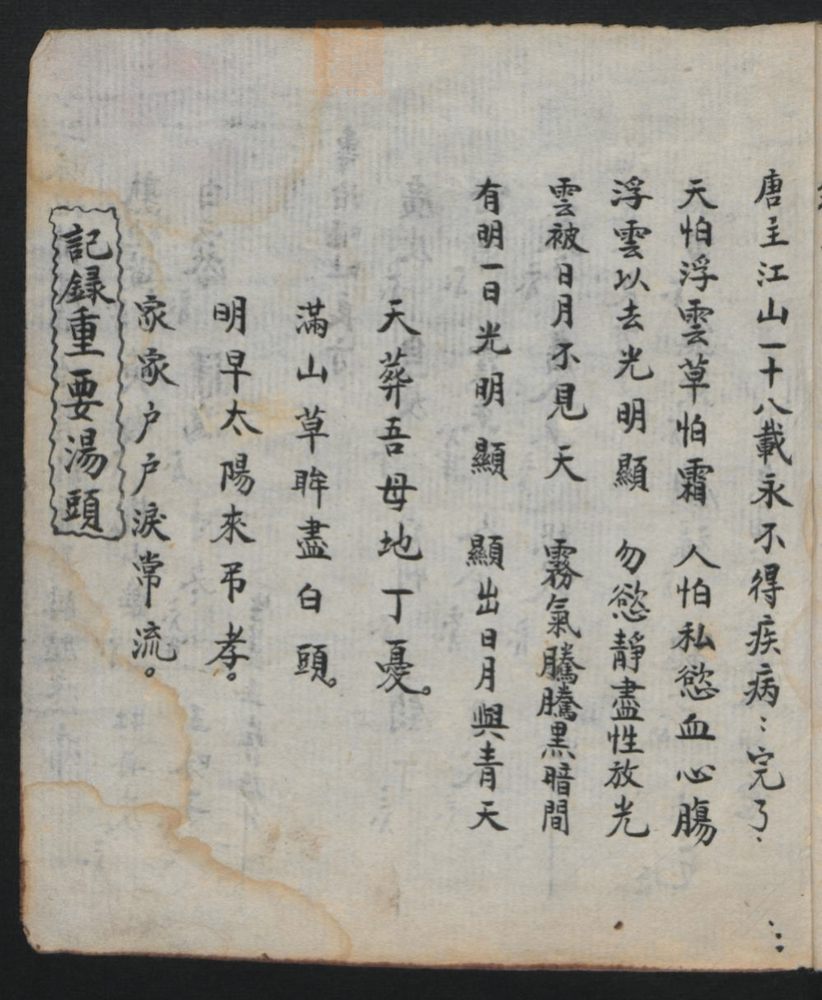 唐主江山一十八載永不得疾病：完了．
天怕浮雲草怕霜　人怕私慾血心腸
浮雲以去光明顯　勿慾靜盡性放光
雲被日月不見天　霧氣騰騰黑暗間
有明一日光明顯　顯出日月與青天
天葬吾母地丁憂。
滿山草眸盡白頭。
明早太陽來弔孝。
家家户户淚常流。
記錄重要湯頭